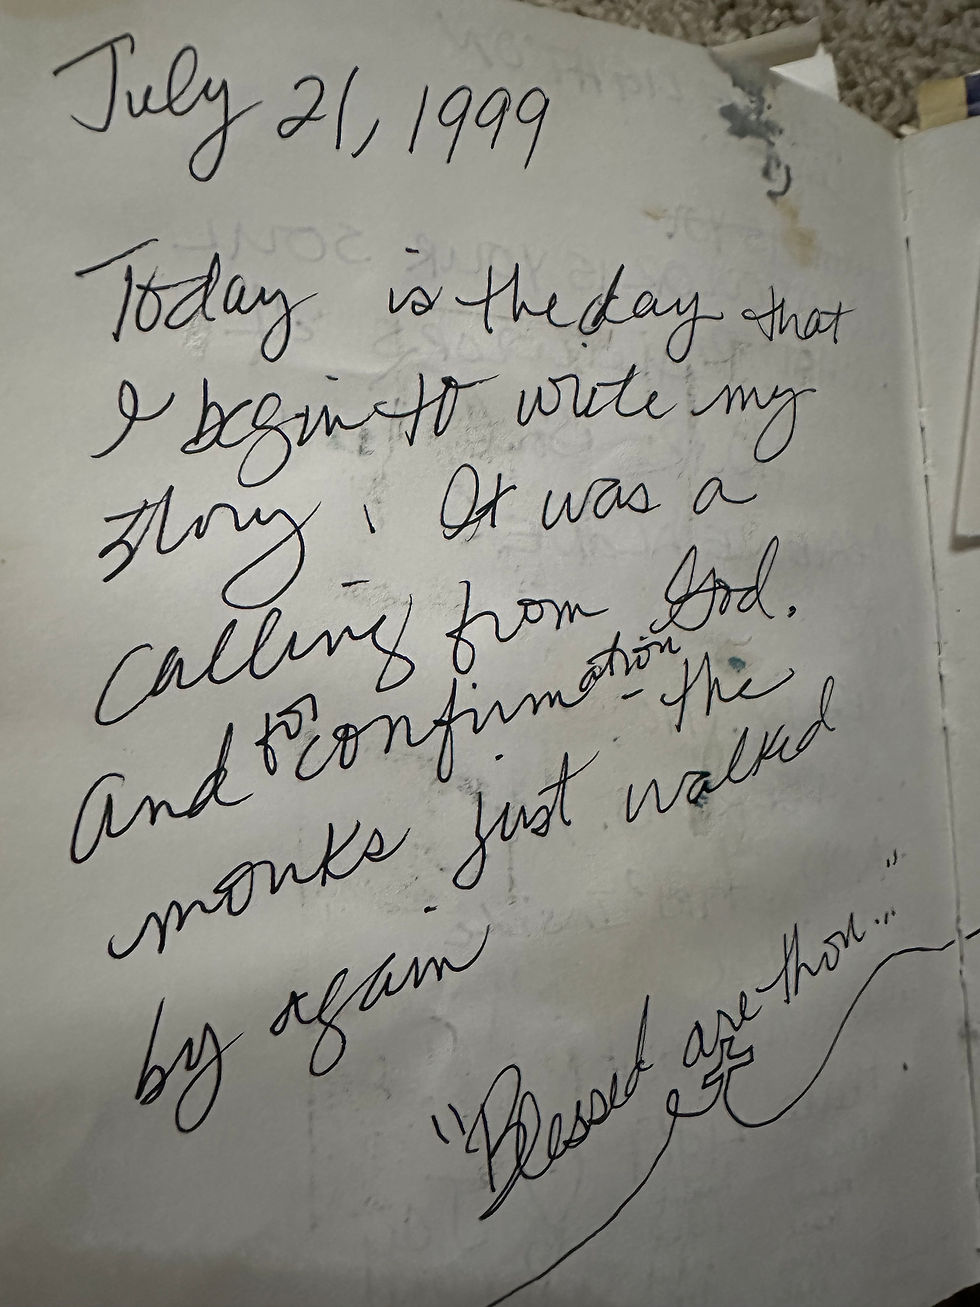 July 21, 1999
Today is the day that
I begin to write my
story. It was a
calling from God.
And for confirmation - the
monks just walked
by again
"Blessed are thou..."